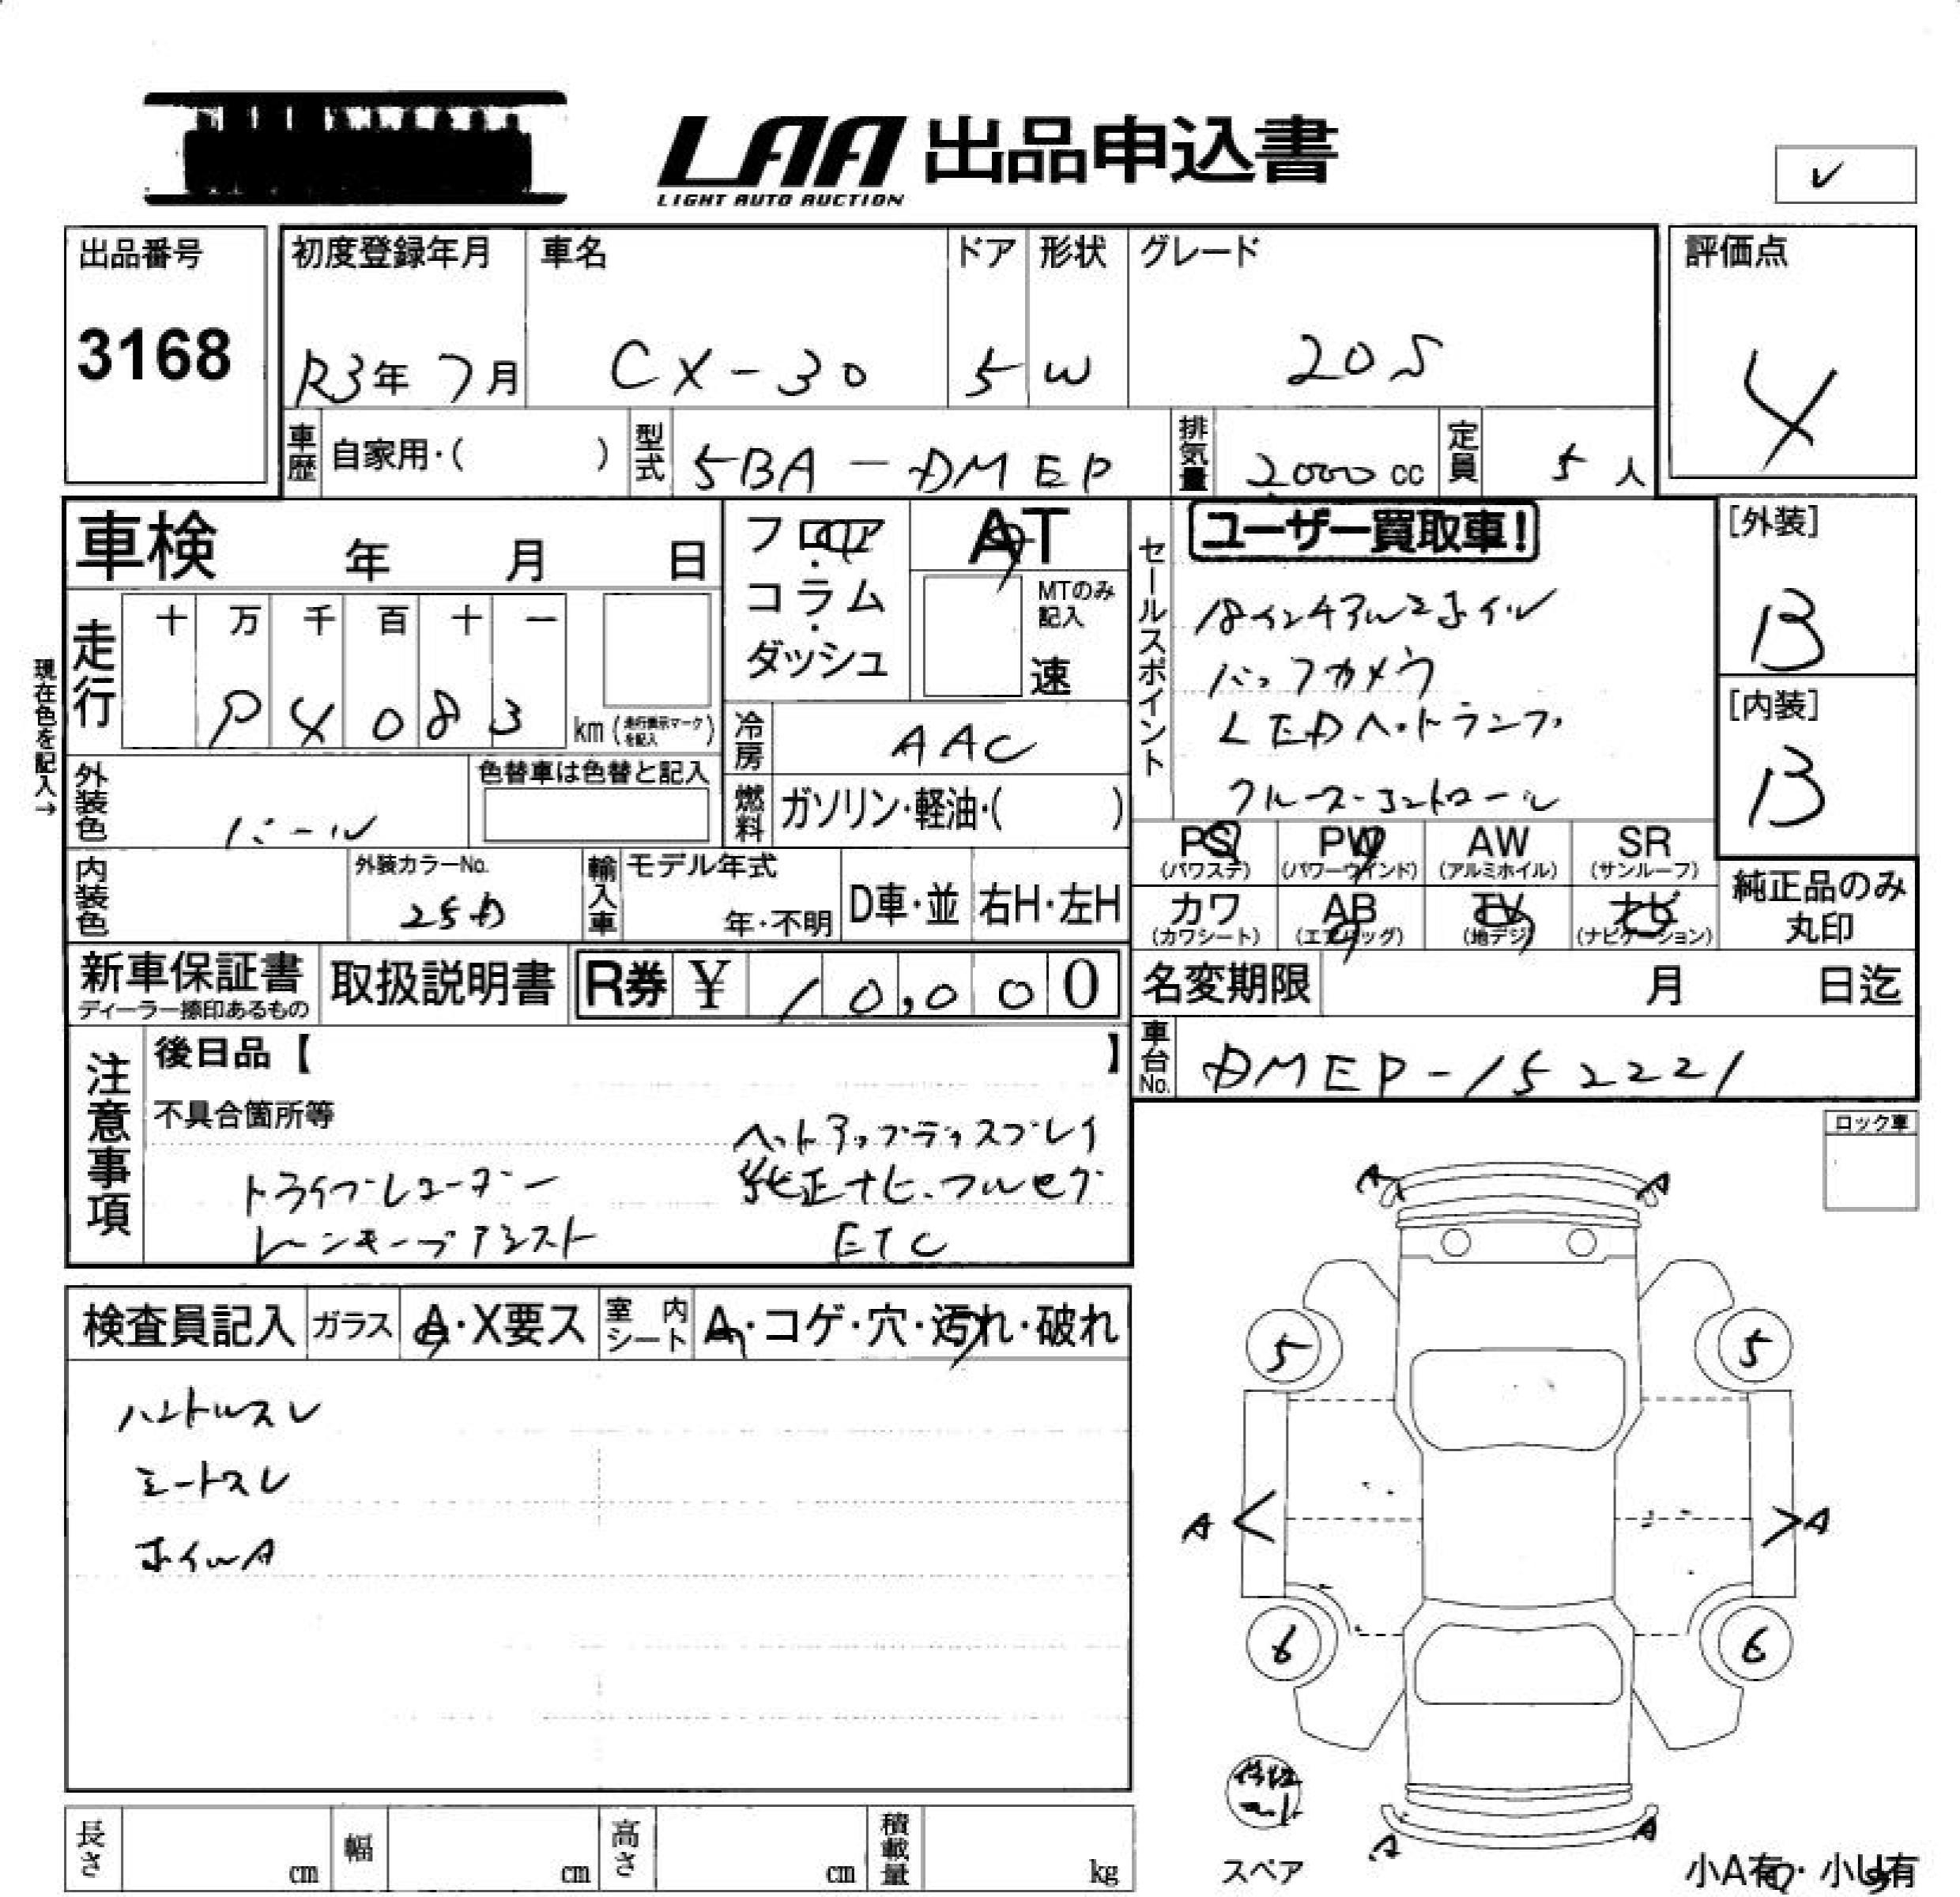 LAA 出品申込書
LIGHT AUTO AUCTION
✓
出品番号
3168
初度登録年月
R3年 7月
車名
CX-30
ドア
5
形状
W
グレード
20S
評価点
4
車歴 自家用・( )
型式 5BA-DMEP
排気量 2,000 cc
定員 5 人
車検 年 月 日
フロア・コラム・ダッシュ
AT
MTのみ記入
速
セールスポイント
ユーザー買取車!
18インチアルミホイル
バックカメラ
LEDヘッドランプ
クルーズコントロール
[外装]
B
[内装]
B
現在色を記入→
走行
十 万 千 百 十 一
4 0 8 3
km (走行表示マークを記入)
冷房 AAC
燃料 ガソリン・軽油・( )
外装色 パール
色替車は色替と記入
内装色
外装カラーNo.
25D
輸入車
モデル年式
年・不明
D車・並
右H・左H
PS (パワステ)
PW (パワーウインド)
AW (アルミホイル)
SR (サンルーフ)
カワ (カワシート)
AB (エアバッグ)
TV (地デジ)
ナビ (ナビゲーション)
純正品のみ丸印
新車保証書
ディーラー捺印あるもの
取扱説明書
R券 ¥ 10,000
名変期限 月 日迄
車台No. DMEP-152221
注意事項
後日品【 】
不具合箇所等
ヘッドアップディスプレイ
ドライブレコーダー
純正ナビ、フルセグ
レーンキープアシスト
ETC
ロック車
検査員記入
ガラス A・X要ス
室内シート A・コゲ・穴・汚れ・破れ
ハンドルスレ
シートスレ
ホイルA
A A
5 5
A < > A
6 6
A A
スペア
小A有・小U有
長さ cm
幅 cm
高さ cm
積載量 kg